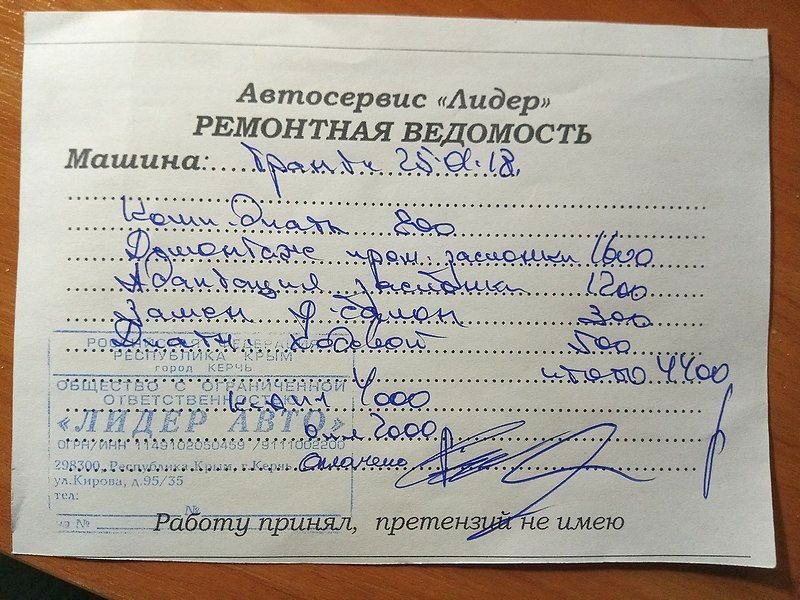 Автосервис «Лидер»
РЕМОНТНАЯ ВЕДОМОСТЬ
Машина: Гранта 18
Комп 800
Демонтаж дром. заслонки 1600
Адаптация заслонки 1200
Замен ф. салон 300
500
итого 4400
РОССИЙСКАЯ ФЕДЕРАЦИЯ
РЕСПУБЛИКА КРЫМ
город КЕРЧЬ
ОБЩЕСТВО С ОГРАНИЧЕННОЙ
ОТВЕТСТВЕННОСТЬЮ
4000
«ЛИДЕР АВТО»
2000
ОГРН/ИНН 1149102050459 /9111002200
298300, Республика Крым, г.Керчь
оплачено
ул.Кирова, д.95/35
тел:
№
№
Работу принял, претензий не имею